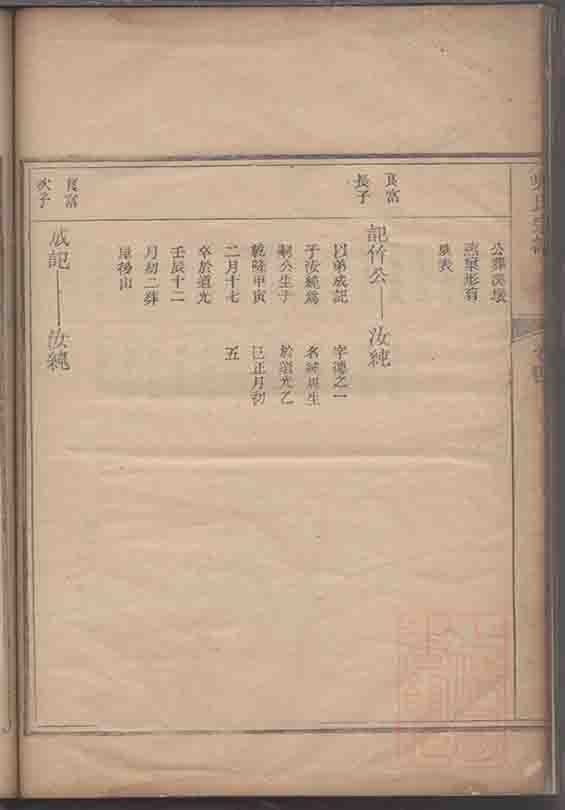 公葬
形有
墓表
良富
長子
記竹公——汝純
以弟成記
子汝純為
嗣公生子
乾隆甲寅
二月十七
卒於道光
壬辰十二
月初二葬
屋後山
字德之一
名
於道光乙
巳正月初
五
良富
次子
成記——汝純